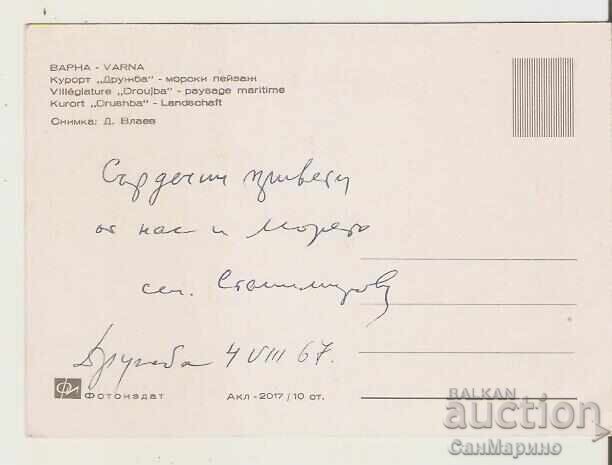 ВАРНА - VARNA
Курорт „Дружба" - морски пейзаж
Villégiature „Droujba" - paysage maritime
Kurort „Drushba" - Landschaft
Снимка: Д. Влаев
Сърдечни привети
от нас и морето
сем. Станимирови
Дружба 4 VIII 67.
Фотоиздат
Акл-2017/10 от.
BALKAN
auction
СанМарино